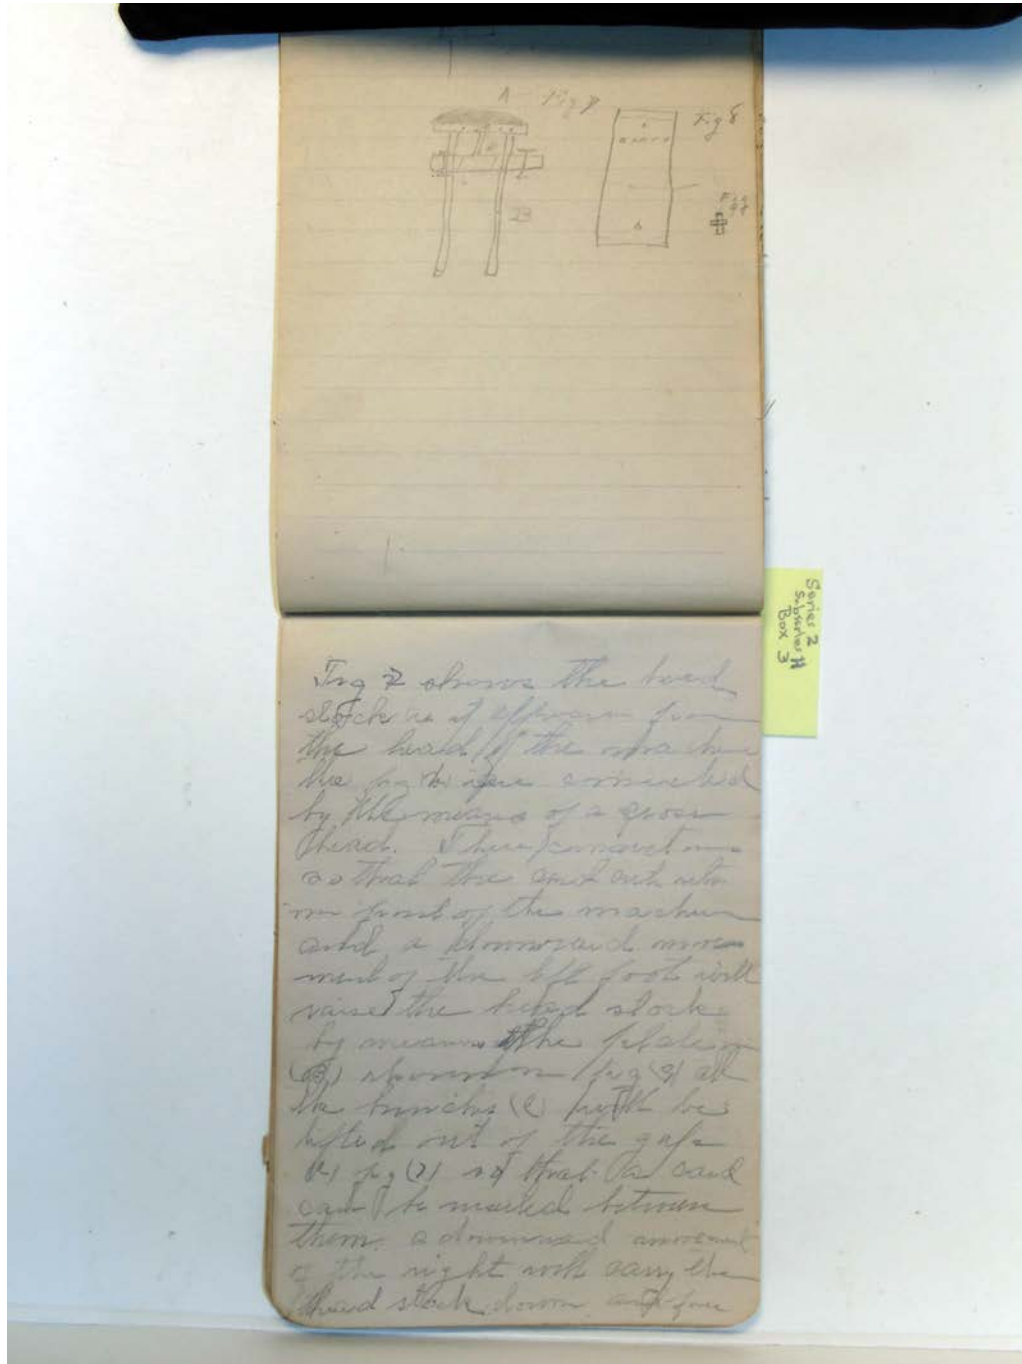 A Fig 7
Fig 8
Fig
23
Series 2
Subseries H
Box 3
Fig 7 shows the head
stock as it appears from
the head of the machine
the connected
by the means of a cross
head. These
so that the
front of the machine
and a downward move-
ment of the left foot will
raise the head stock
by means the
(B) shown in fig (9) all
the punches (C) will be
lifted out of the gaps
fig (7) so that a card
can be between
them. a downward movement
of the right will carry the
head stock down and